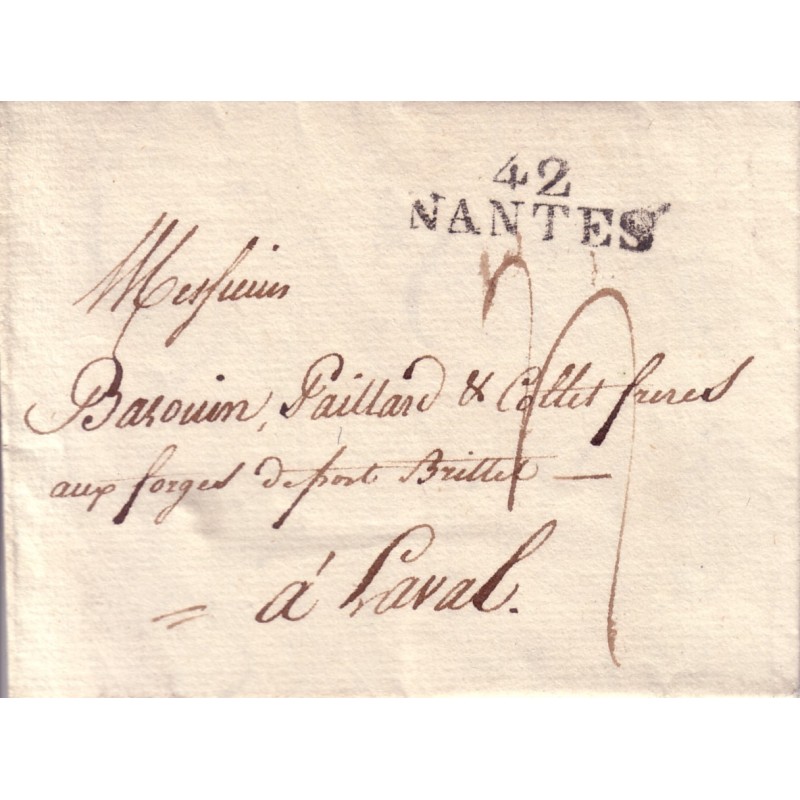 42
NANTES
Messieurs
Bazouin, Paillard & Collet freres
aux forges de port Brillet —
= à Laval.